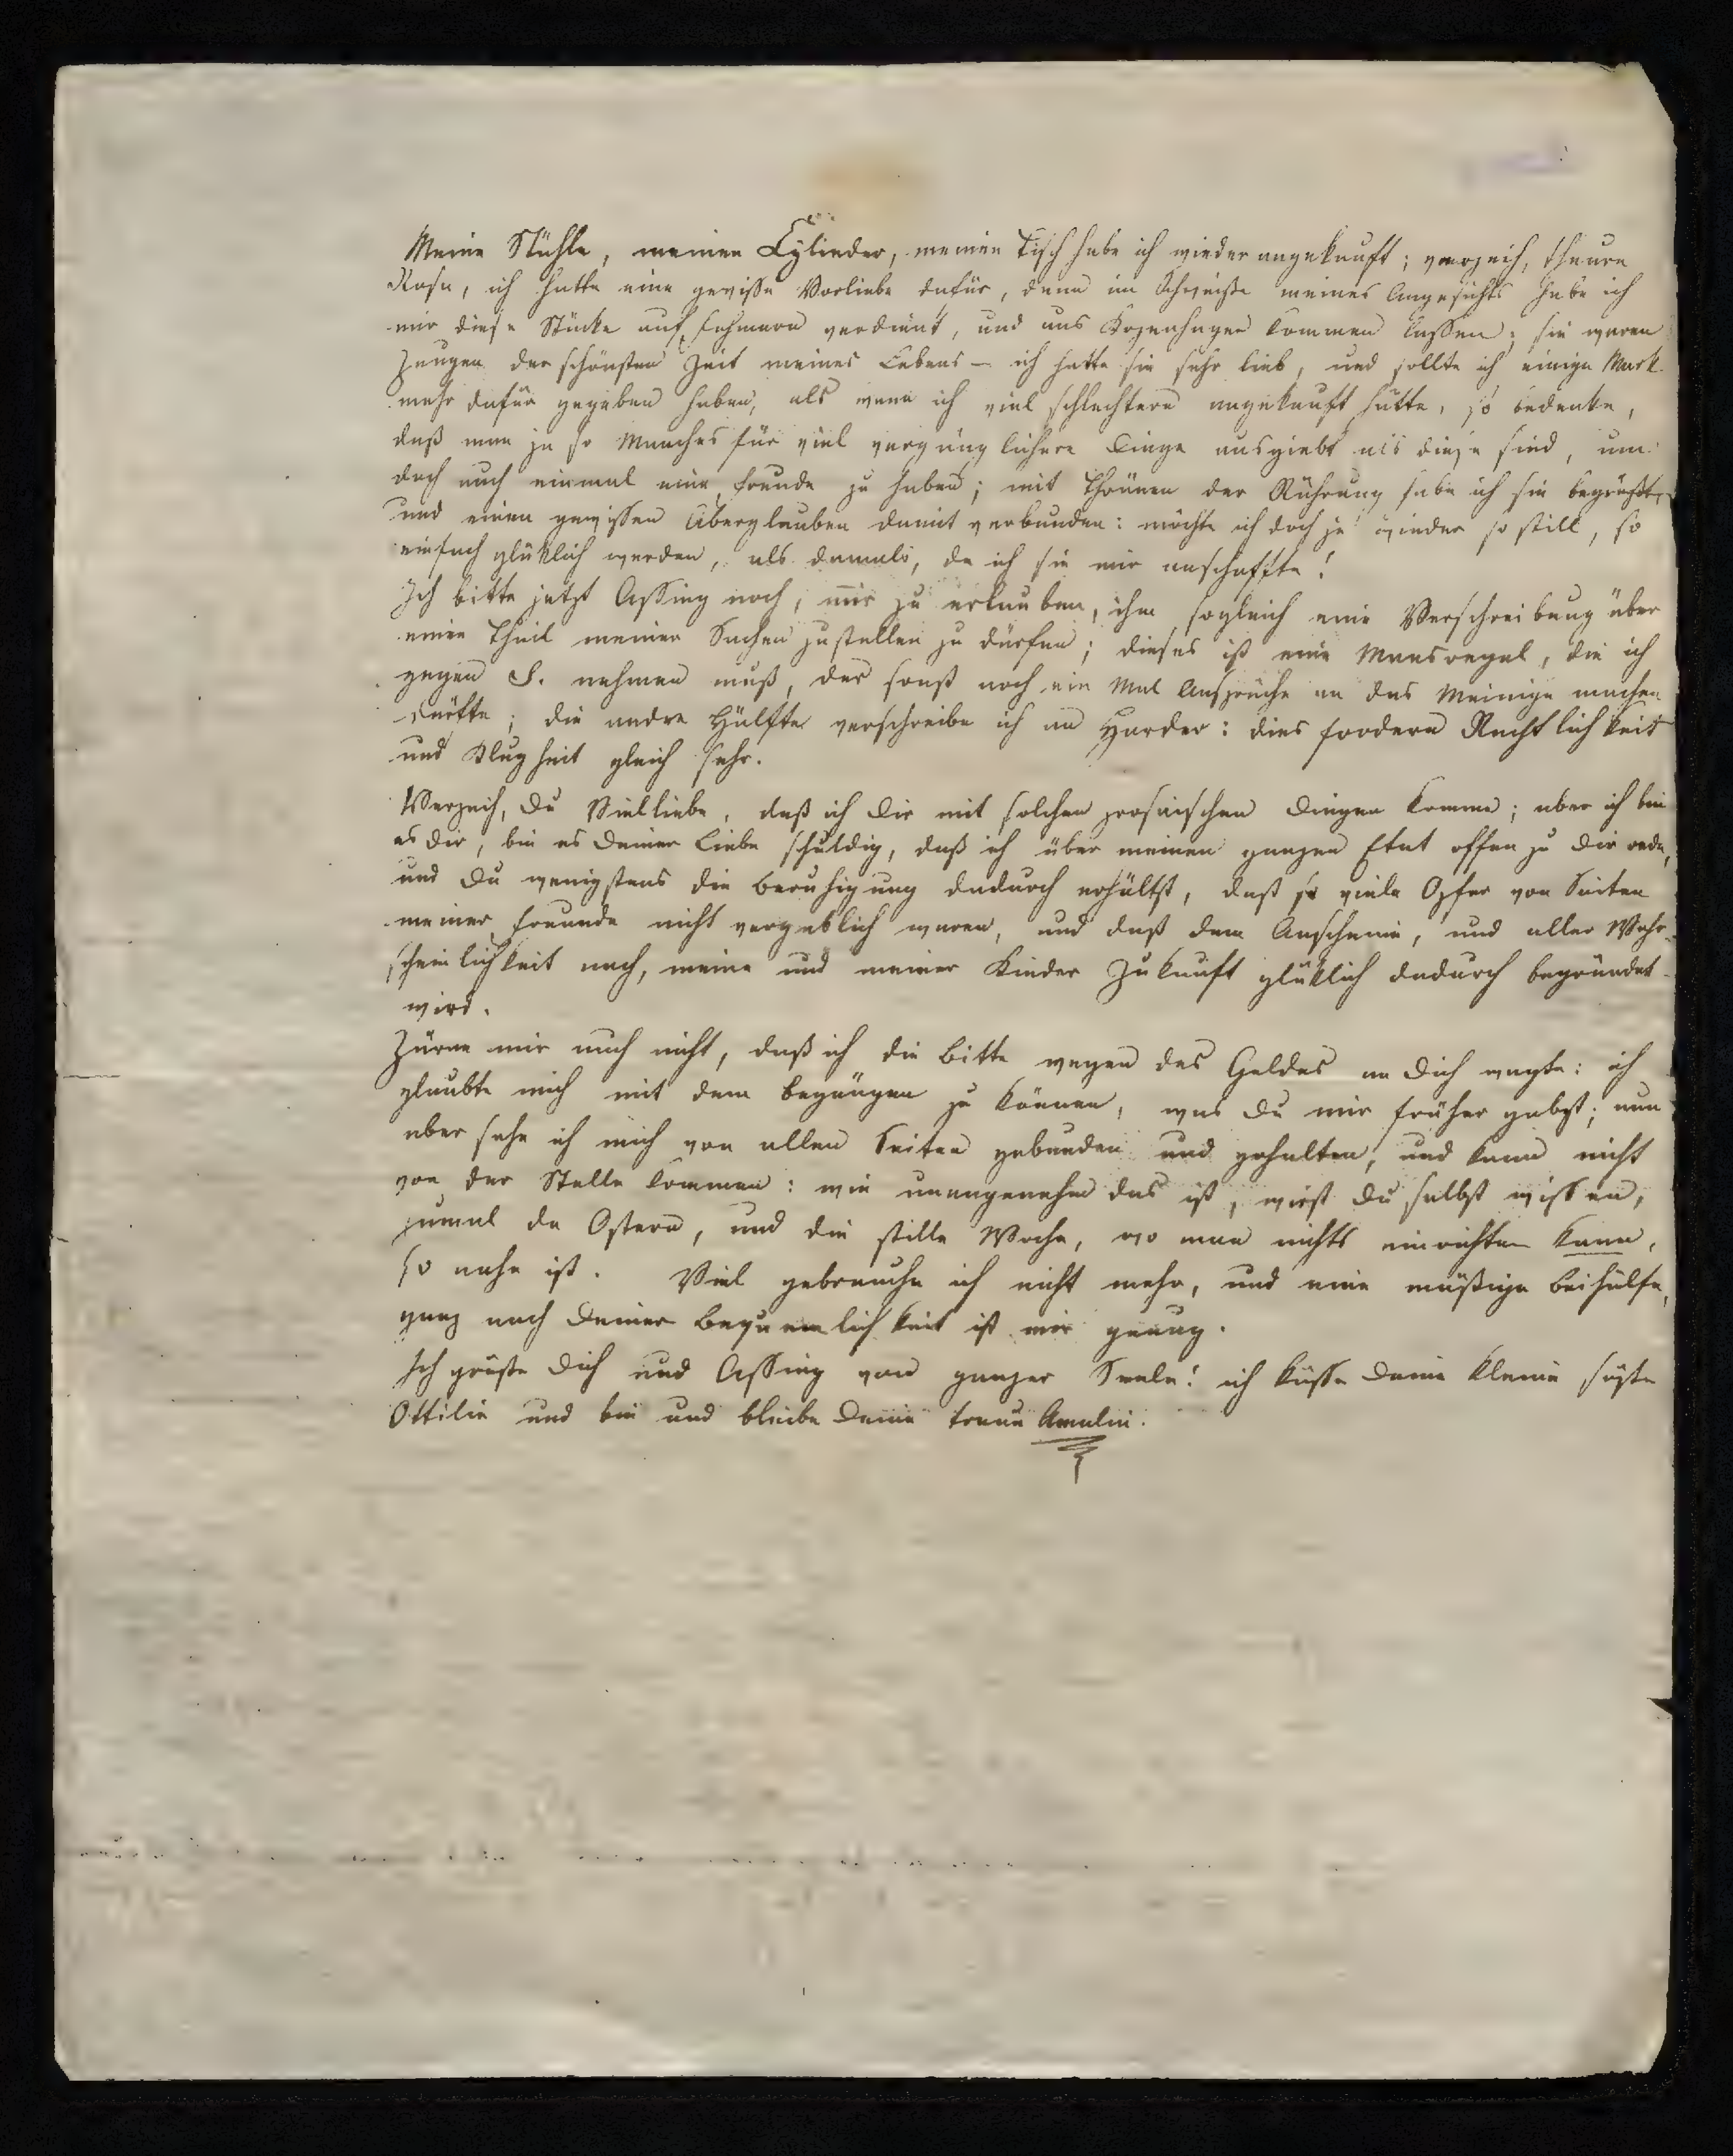 Meine Stühle, meinen Cylinder, meinen Tisch habe ich wieder angekauft; verzeih, theure
Rosa, ich hatte eine gewisse Vorliebe dafür, denn im Schweiße meines Angesichts habe ich
mir diese Stücke auf Fehmarn verdient, und aus Kopenhagen kommen lassen; sie waren
Zeugen der schönsten Zeit meines Lebens – ich hatte sie sehr lieb, und sollte ich einige Mark
mehr dafür gegeben haben, als wenn ich viel schlechtere angekauft hätte, so bedenke,
daß man ja so Manches für viel vergänglichere Dinge ausgiebt als diese sind, um
doch auch einmal eine Freude zu haben; mit Thränen der Rührung habe ich sie begrüßt,
und einen gewissen Aberglauben damit verbunden: möchte ich doch je wieder so still, so
einfach glüklich werden, als damals, da ich sie mir anschaffte!
Ich bitte jetzt Assing noch, mir zu erlauben, ihm sogleich eine Verschreibung über
einen Theil meiner Sachen zustellen zu dürfen; dieses ist eine Maasregel, die ich
gegen S. nehmen muß, der sonst noch ein Mal Ansprüche an das Meinige machen
dürfte; die andre Hälfte verschreibe ich an Harder: dies fordern Rechtlichkeit
und Klugheit gleich sehr.
Verzeih, Du Vielliebe, daß ich Dir mit solchen prosaischen Dingen komme; aber ich bin
es Dir, bin es Deiner Liebe schuldig, daß ich über meinen ganzen Etat offen zu Dir rede,
und Du wenigstens die Beruhigung dadurch erhältst, daß so viele Opfer von Seiten
meiner Freunde nicht vergeblich waren, und daß dem Anscheine, und aller Wahr-
scheinlichkeit nach, meine und meiner Kinder Zukunft glüklich dadurch begründet
wird.
Zürne mir auch nicht, daß ich die Bitte wegen des Geldes an Dich wagte: ich
glaubte mich mit dem begnügen zu können, was Du mir früher gabst; nun
aber sehe ich mich von allen Seiten gebunden und gehalten, und kann nicht
von der Stelle kommen: wie unangenehm das ist, wirst Du selbst wissen,
zumal da Ostern, und die stille Woche, wo man nichts einrichten kann,
so nahe ist. Viel gebrauche ich nicht mehr, und eine mäßige Beihülfe,
ganz nach Deiner Bequemlichkeit ist mir genug.
Ich grüße Dich und Assing von ganzer Seele! ich küsse Deine kleine süße
Ottilie und bin und bleibe Deine treue Amalie.